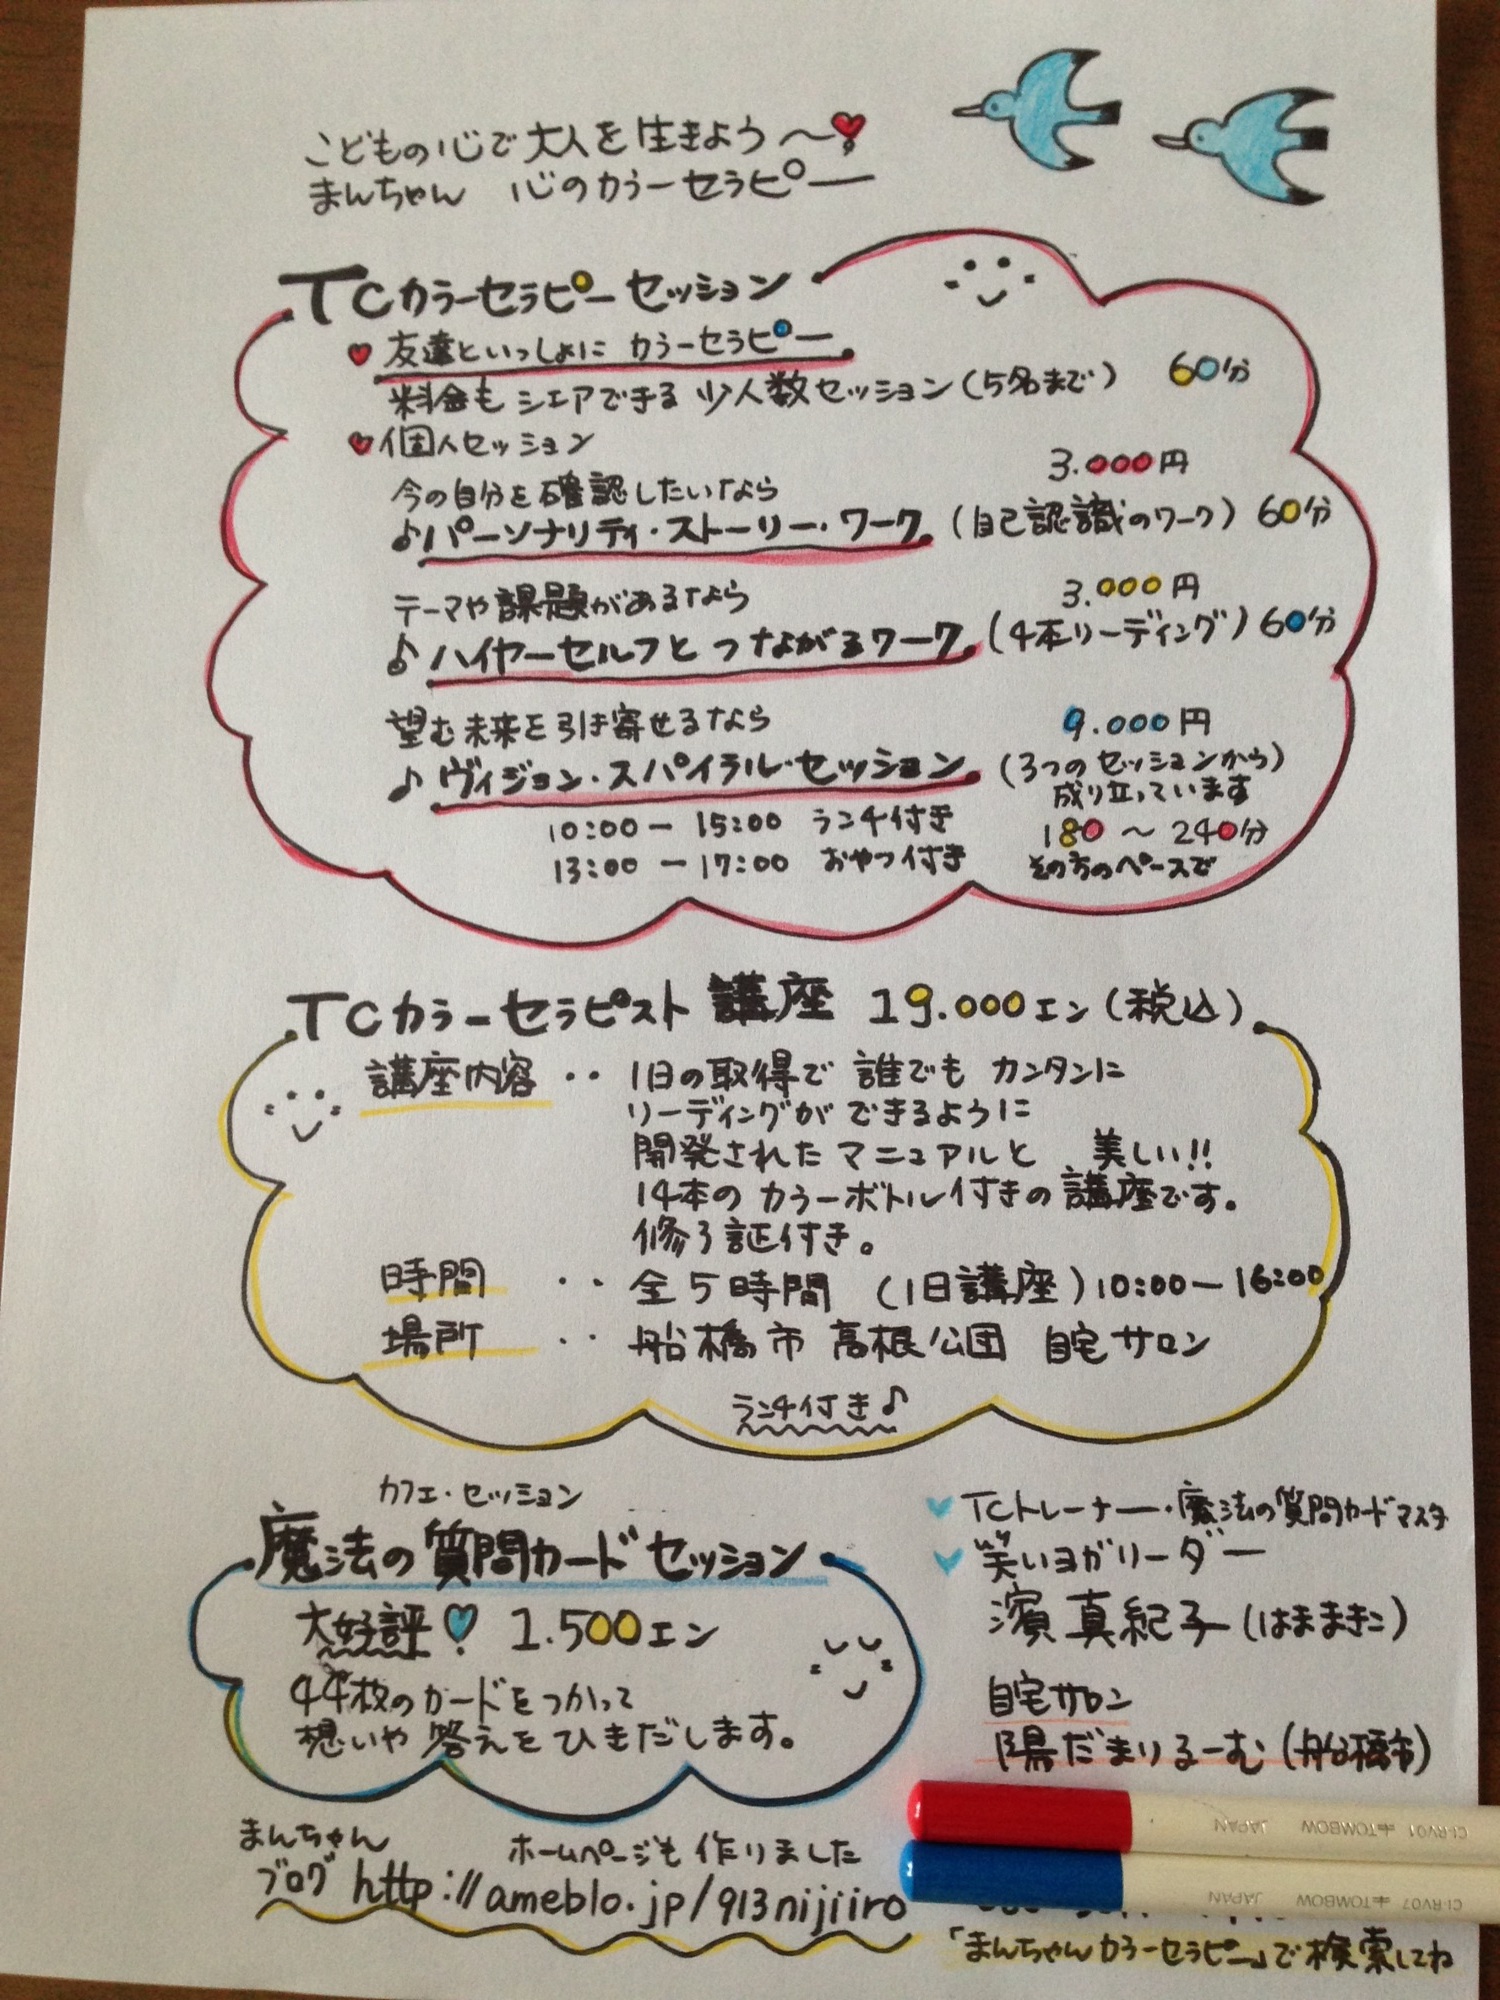 こどもの心で大人を生きよう〜
まんちゃん 心のカラーセラピー
TCカラーセラピーセッション
友達といっしょに カラーセラピー
料金もシェアできる 少人数セッション(5名まで) 60分
個人セッション
3.000円
今の自分を確認したいなら
♪パーソナリティ・ストーリー・ワーク (自己認識のワーク) 60分
テーマや課題があるなら 3.000円
♪ハイヤーセルフとつながるワーク (4本リーディング) 60分
望む未来を引き寄せるなら 9.000円
♪ヴィジョン・スパイラル・セッション (3つのセッションから)
成り立っています
10:00ー15:00 ランチ付き 180〜240分
13:00ー17:00 おやつ付き その方のペースで
TCカラーセラピスト講座 19.000エン(税込)
講座内容・・1日の取得で 誰でも カンタンに
リーディングが できるように
開発されたマニュアルと 美しい!!
14本のカラーボトル付きの講座です。
修了証付き。
時間・・全5時間 (1日講座)10:00ー16:00
場所・・船橋市 高根公団 自宅サロン
ランチ付き♪
カフェ・セッション
魔法の質問カードセッション
大好評 1.500エン
44枚のカードをつかって
想いや答えをひきだします。
TCトレーナー・魔法の質問カードマスター
笑いヨガリーダー
濱 真紀子(はままきこ)
自宅サロン
陽だまりるーむ(船橋市)
まんちゃん ホームページも作りました
ブログ http://ameblo.jp/913nijiiro
「まんちゃんカラーセラピー」で検索してね
CI-RV01 TOMBOW JAPAN
CI-RV07 TOMBOW JAPAN